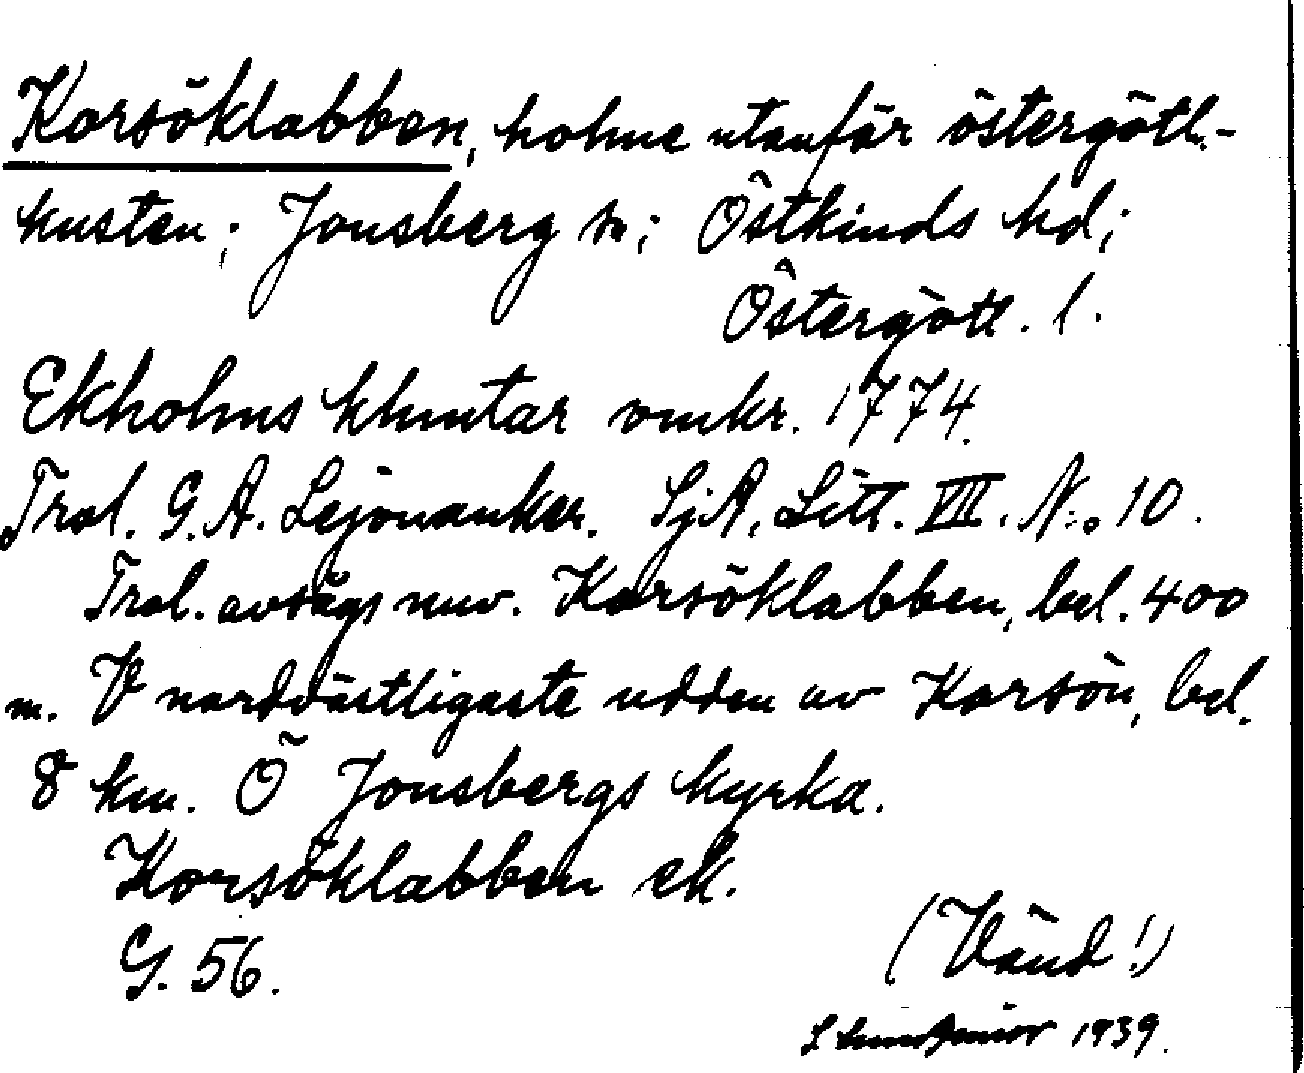 Korsöklabben, holme utanför östergötl.-
kusten; Jonsberg sn; Östkinds hd;
Östergötl. l.
Ekholms klintar omkr. 1774.
Trol. G. A. Lejonanker. SjA, Litt. VIII. No. 10.
Trol. avsågs nuv. Korsöklabben, bel. 400
m. V nordvästligaste udden av Korsön, bel.
8 km. Ö Jonsbergs kyrka.
Korsöklabben ek.
G. 56.
(Vänd!)
1939.